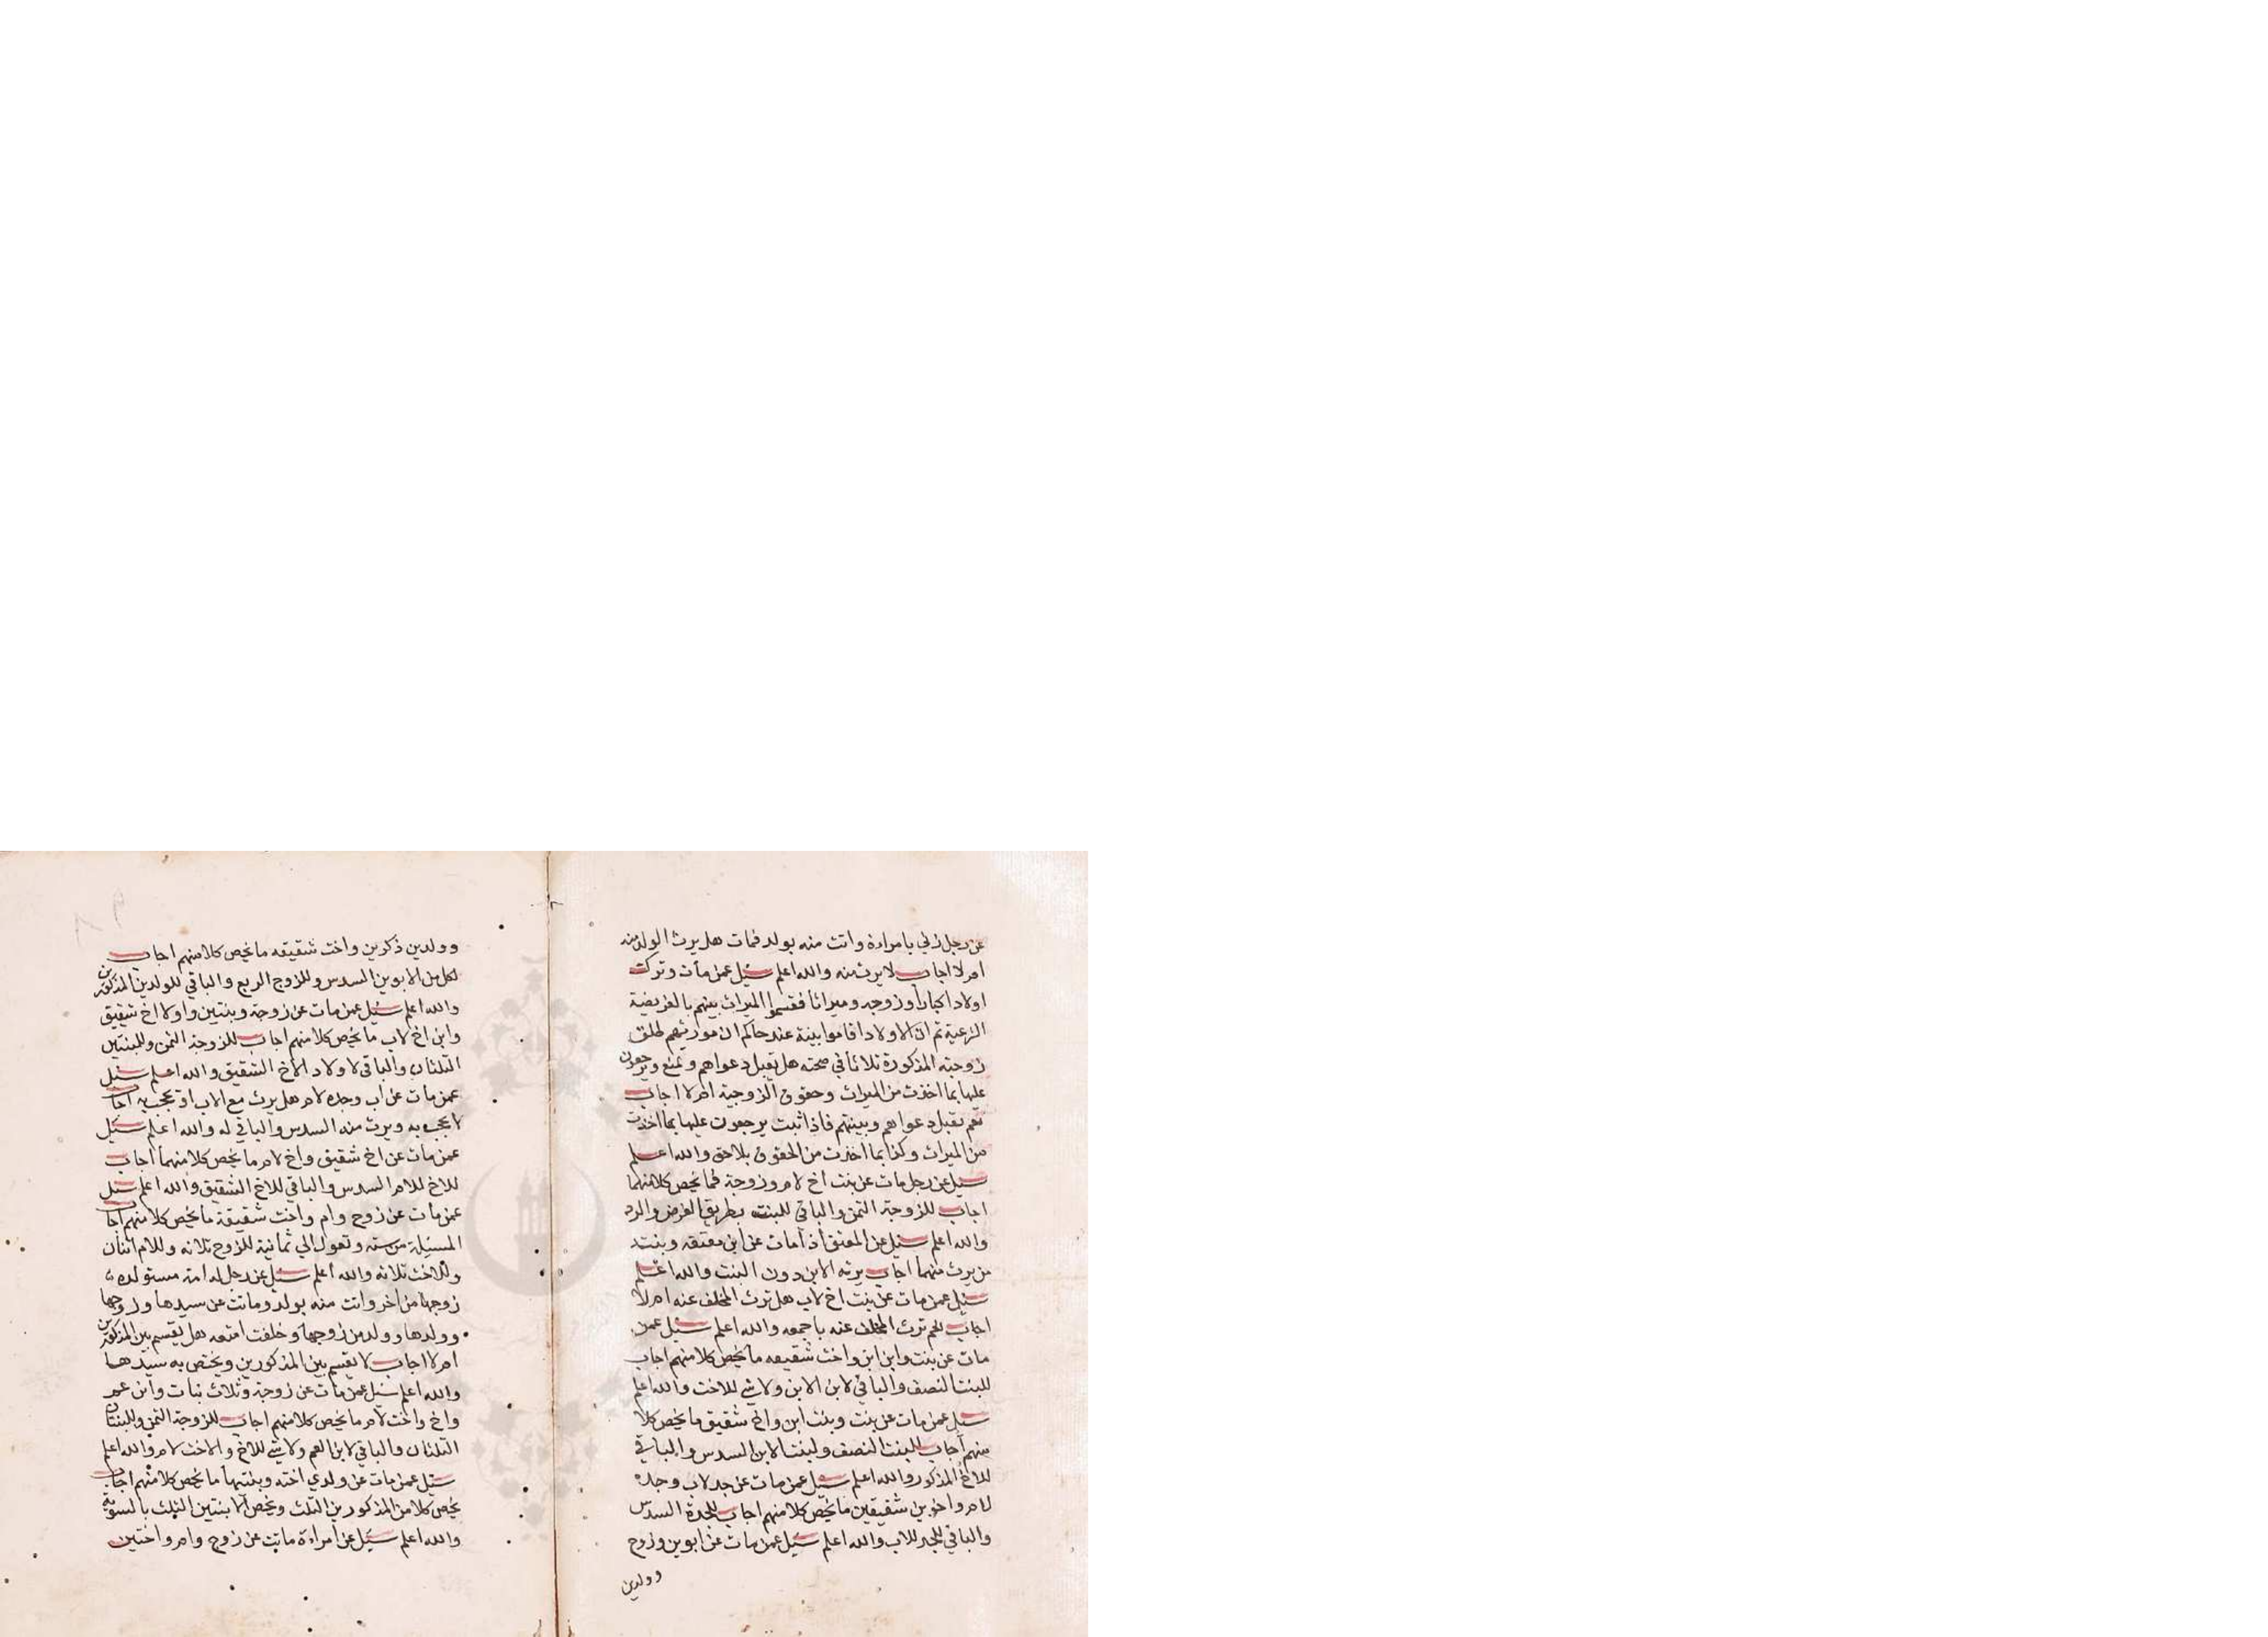 عن رجل زني بامراءة واتت منه بولد فمات هل يرث الولد منه
ام لا اجاب لا يرث منه والله اعلم سئل عمن مات وترك
اولادا كبارا وزوجه وميراثا فقسموا الميراث بينهم بالفريضة
الشرعية ثم ان الاولاد اقاموا بينة عند حاكم ان مورثهم طلق
زوجته المذكورة ثلاثا في صحته هل يقبل دعواهم وتمنع ويرجعون
عليها بما اخذت من الميراث وحقوق الزوجية ام لا اجاب
نعم تقبل دعواهم وبينتهم فاذا ثبت يرجعون عليها بما اخذت
من الميراث وكذا بما اخذت من الحقوق بلا حق والله اعلم
سئل عن رجل مات عن بنت اخ لام وزوجة فما يخص كلا منهما
اجاب للزوجة الثمن والباقي للبنت بطريق الفرض والرد
والله اعلم سئل عن المعتق اذا مات عن ابن معتقه وبنته
من يرث منهما اجاب يرثه الابن دون البنت والله اعلم
سئل عمن مات عن بنت اخ لاب هل ترث المخلف عنه ام لا
اجاب نعم ترث المخلف عنه باجمعه والله اعلم سئل عمن
مات عن بنت وابن ابن واخت شقيقه ما يخص كلا منهم اجاب
للبنت النصف والباقي لابن الابن ولا شي للاخت والله اعلم
سئل عمن مات عن بنت وبنت ابن واخ شقيق ما يخص كلا
منهم اجاب للبنت النصف ولبنت الابن السدس والباقي
للاخ المذكور والله اعلم سئل عمن مات عن جد لاب وجده
لام واخوين شقيقين ما يخص كلا منهم اجاب للجدة السدس
والباقي للجد للاب والله اعلم سئل عمن مات عن ابوين وزوج
وولدين
وولدين ذكرين واخت شقيقه ما يخص كلا منهم اجاب
لكل من الابوين السدس وللزوج الربع والباقي للولدين المذكورين
والله اعلم سئل عمن مات عن زوجة وبنتين واولاد اخ شقيق
وابن اخ لاب ما يخص كلا منهم اجاب للزوجة الثمن وللبنتين
الثلثان والباقي لاولاد الاخ الشقيق والله اعلم سئل
عمن مات عن اب وجده لام هل يرث مع الاب او تحجب به اجاب
لا يحجب به ويرث منه السدس والباقي له والله اعلم سئل
عمن مات عن اخ شقيق واخ لام ما يخص كلا منهما اجاب
للاخ للام السدس والباقي للاخ الشقيق والله اعلم سئل
عمن مات عن زوج وام واخت شقيقة ما يخص كلا منهم اجاب
المسئلة من سته وتعول الي ثمانية للزوج ثلاثه وللام اثنان
وللاخت ثلاثه والله اعلم سئل عن رجل له امة مستولده
زوجها من اخر واتت منه بولد وماتت عن سيدها وزوجها
وولدها وولد من زوجها وخلفت امتعه هل يقسم بين المذكورين
ام لا اجاب لا يقسم بين المذكورين ويختص به سيدها
والله اعلم سئل عمن مات عن زوجة وثلاث بنات وابن عم
واخ واخت لام ما يخص كلا منهم اجاب للزوجة الثمن وللبنات
الثلثان والباقي لابن العم ولا شي للاخ والاخت لام والله اعلم
سئل عمن مات عن ولدي اخته وبنتيها ما يخص كلا منهم اجاب
يخص كلا من المذكورين الثلث ويخص الابنتين الثلث بالسوية
والله اعلم سئل عن امراءة ماتت عن زوج وام واختين